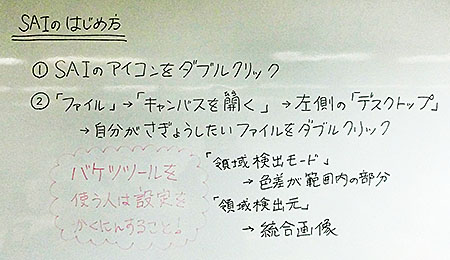 SAIのはじめ方
① SAIのアイコンをダブルクリック
② 「ファイル」→「キャンバスを開く」→左側の「デスクトップ」
→自分がさぎょうしたいファイルをダブルクリック
バケツツールを
使う人は設定を
かくにんすること!
「領域検出モード」
→色差が範囲内の部分
「領域検出元」
→統合画像